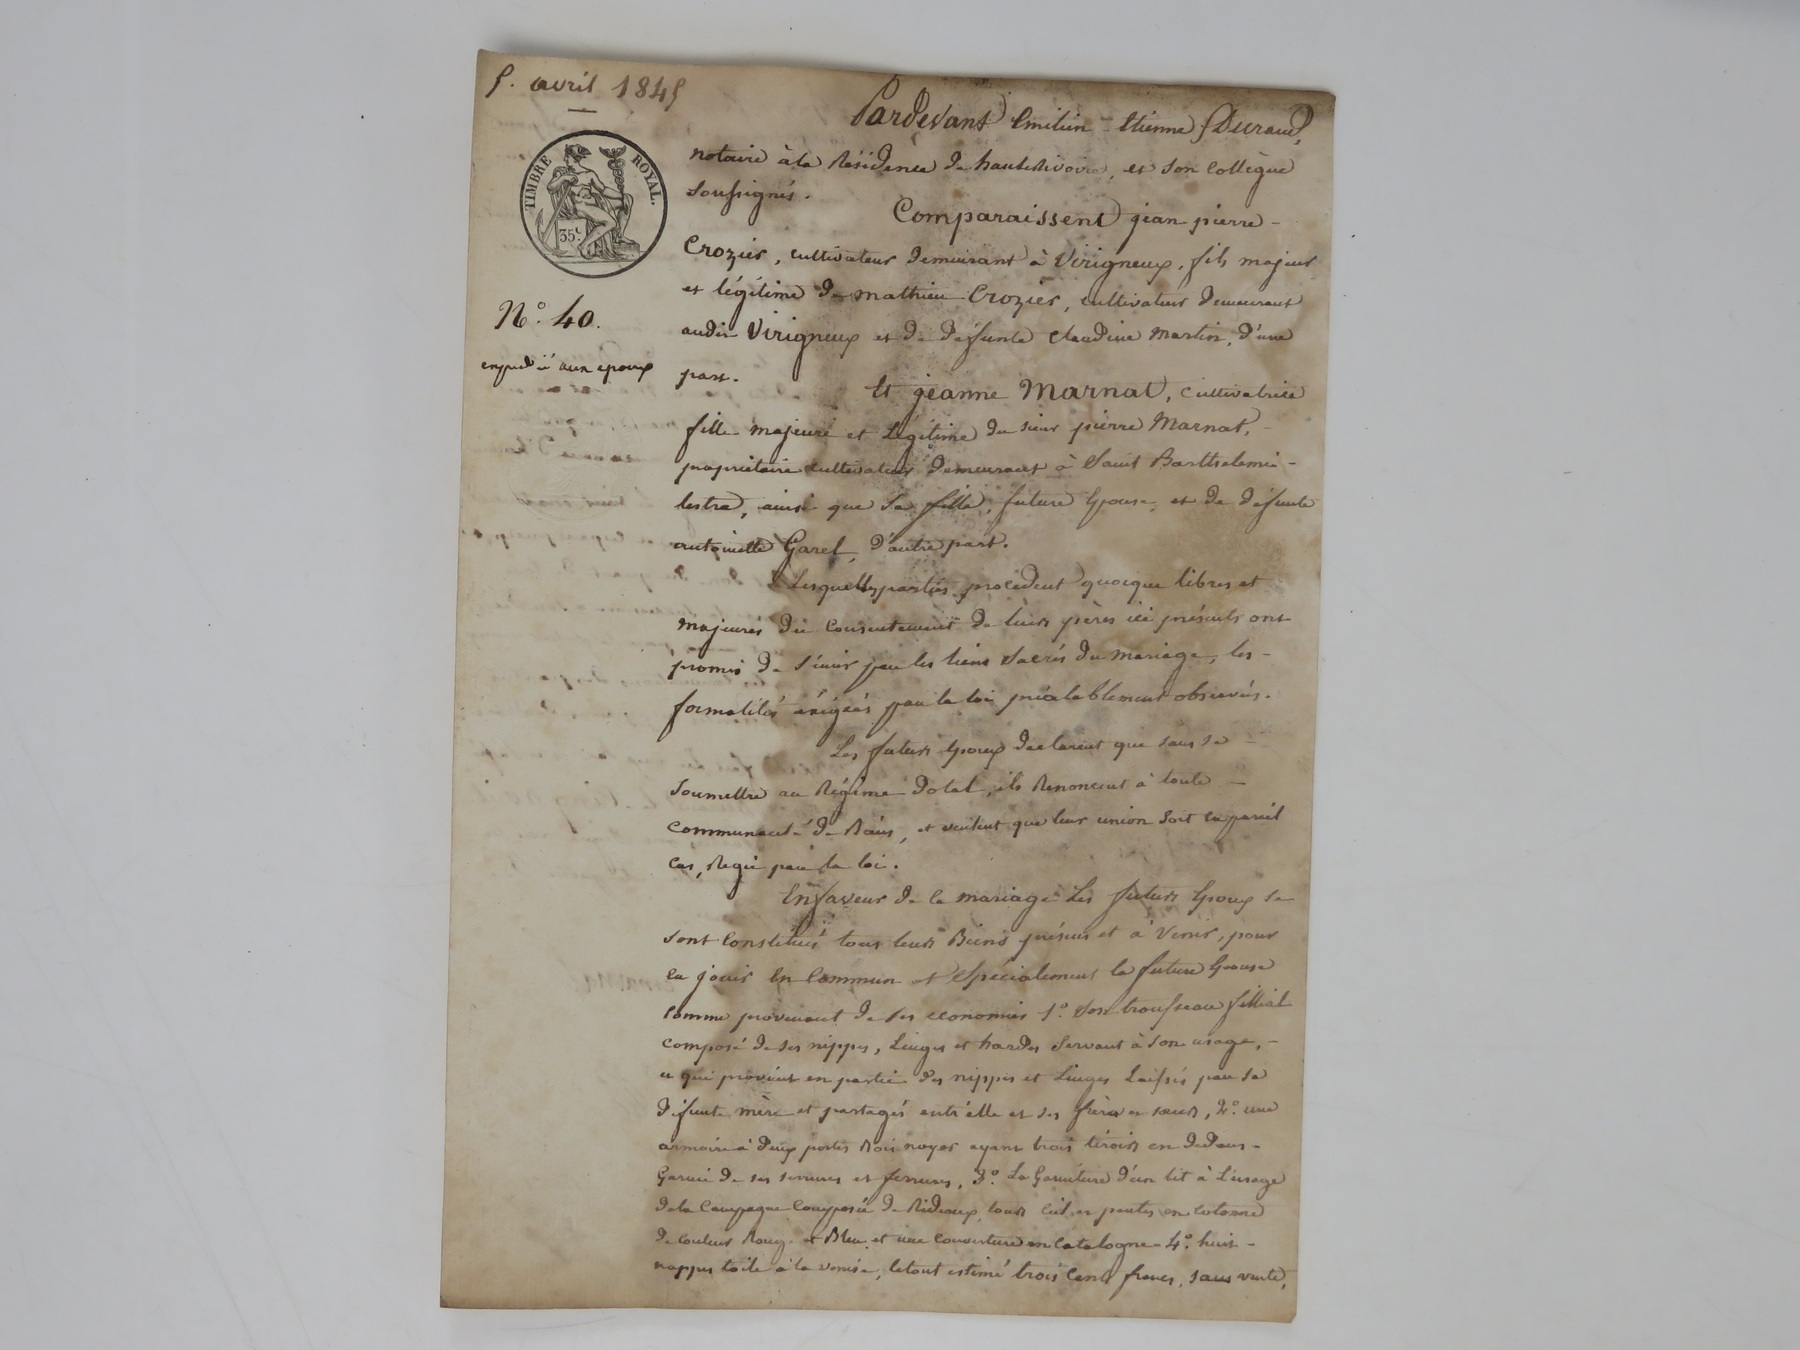 5. avril 1845
Pardevant Emilien-Etienne Durand,
notaire à la Résidence de hauteRivoire, et son Collègue
soussignés.
TIMBRE ROYAL.
35c.
Comparaissent jean pierre -
Crozier, cultivateur demeurant à Virigneux, fils majeur
et légitime de mathieu Crozier, cultivateur demeurant
audit Virigneux et de défunte Claudine Martin, d'une
part.
N° 40.
expedié aux epoux
Et jeanne Marnat, cultivatrice
fille majeure et légitime du sieur pierre Marnat, -
propriétaire cultivateur demeurant à Saint Barthelemi -
lestra, ainsi que sa fille, future Epouse, et de défunte
antoinette Garel, d'autre part.
Lesquelles parties procédent quoique libres et
majeures du consentement de leurs pères ici présents ont
promis de s'unir par les liens sacrés du mariage, les -
formalités éxigées par la loi préalablement observées.
Les futurs Epoux declarent que sans se -
soumettre au Régime dotal, ils Renoncent à toute -
communauté de Biens, et veulent que leur union soit en pareil
cas, Regie par la loi.
En faveur de ce mariage Les futurs Epoux se
sont Constitués tous leurs Biens présens et à Venir, pour
en jouir En Commun et Spécialement la future Epouse
comme provenant de ses economies 1° son trousseau fillial
composé de ses nippes, Linges et hardes servant à son usage, -
ce qui provient en partie des nippes et Linges Laissés par sa
défunte mère et partagés entr'elle et ses frères et sœurs, 2° une
armoire à deux portes Bois noyer ayant trois tiroirs en dedans -
Garnie de ses serrures et ferrures, 3° La Garniture d'un lit à L'usage
de la Campagne Composée de Rideaux, tours Ciel et pentes en cotonne
de couleur Rouge et Bleu et une couverture en Catalogne - 4° huit -
nappes toile à la venise, le tout estimé trois Cents francs, sans vente,